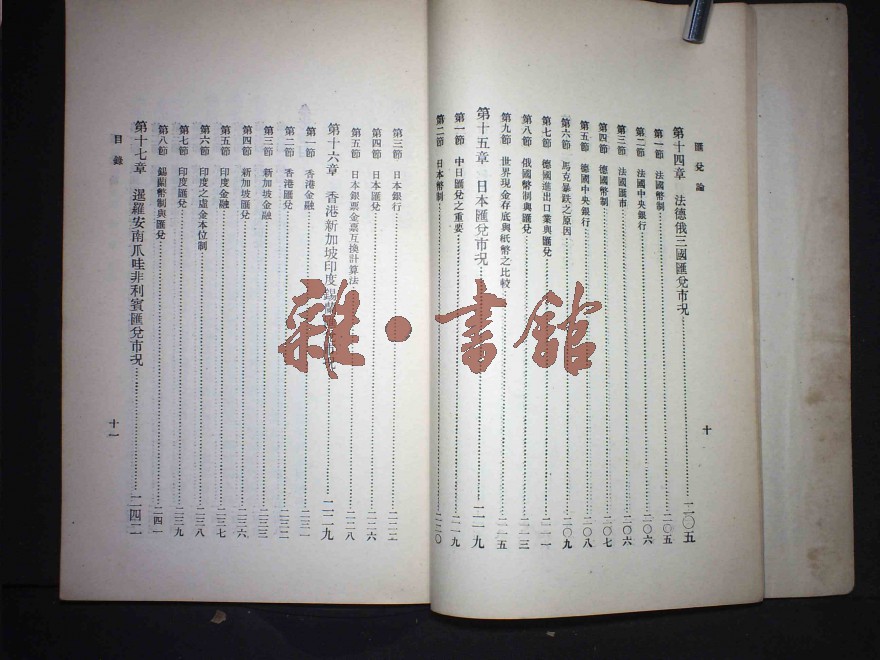 匯兌論
第十四章 法德俄三國匯兌市況 二〇五
第一節 法國幣制 二〇五
第二節 法國中央銀行 二〇六
第三節 法國匯市 二〇六
第四節 德國幣制 二〇七
第五節 德國中央銀行 二〇八
第六節 馬克暴跌之原因 二〇九
第七節 德國進出口業與匯兌 二一一
第八節 俄國幣制與匯兌 二一三
第九節 世界現金存底與紙幣之比較 二一五
第十五章 日本匯兌市況 二一九
第一節 中日匯兌之重要 二一九
第二節 日本幣制 二二〇
十
第三節 日本銀行
第四節 日本匯兌 二二六
第五節 日本銀票金票互換計算法 二二八
第十六章 香港新加坡印度錫蘭 二二九
第一節 香港金融 二三一
第二節 香港匯兌 二三二
第三節 新加坡金融 二三三
第四節 新加坡匯兌 二三六
第五節 印度金融 二三七
第六節 印度之虛金本位制 二三八
第七節 印度匯兌 二三九
第八節 錫蘭幣制與匯兌 二四一
第十七章 暹羅安南爪哇非利賓匯兌市況 二四二
目錄
十一
雜·書館